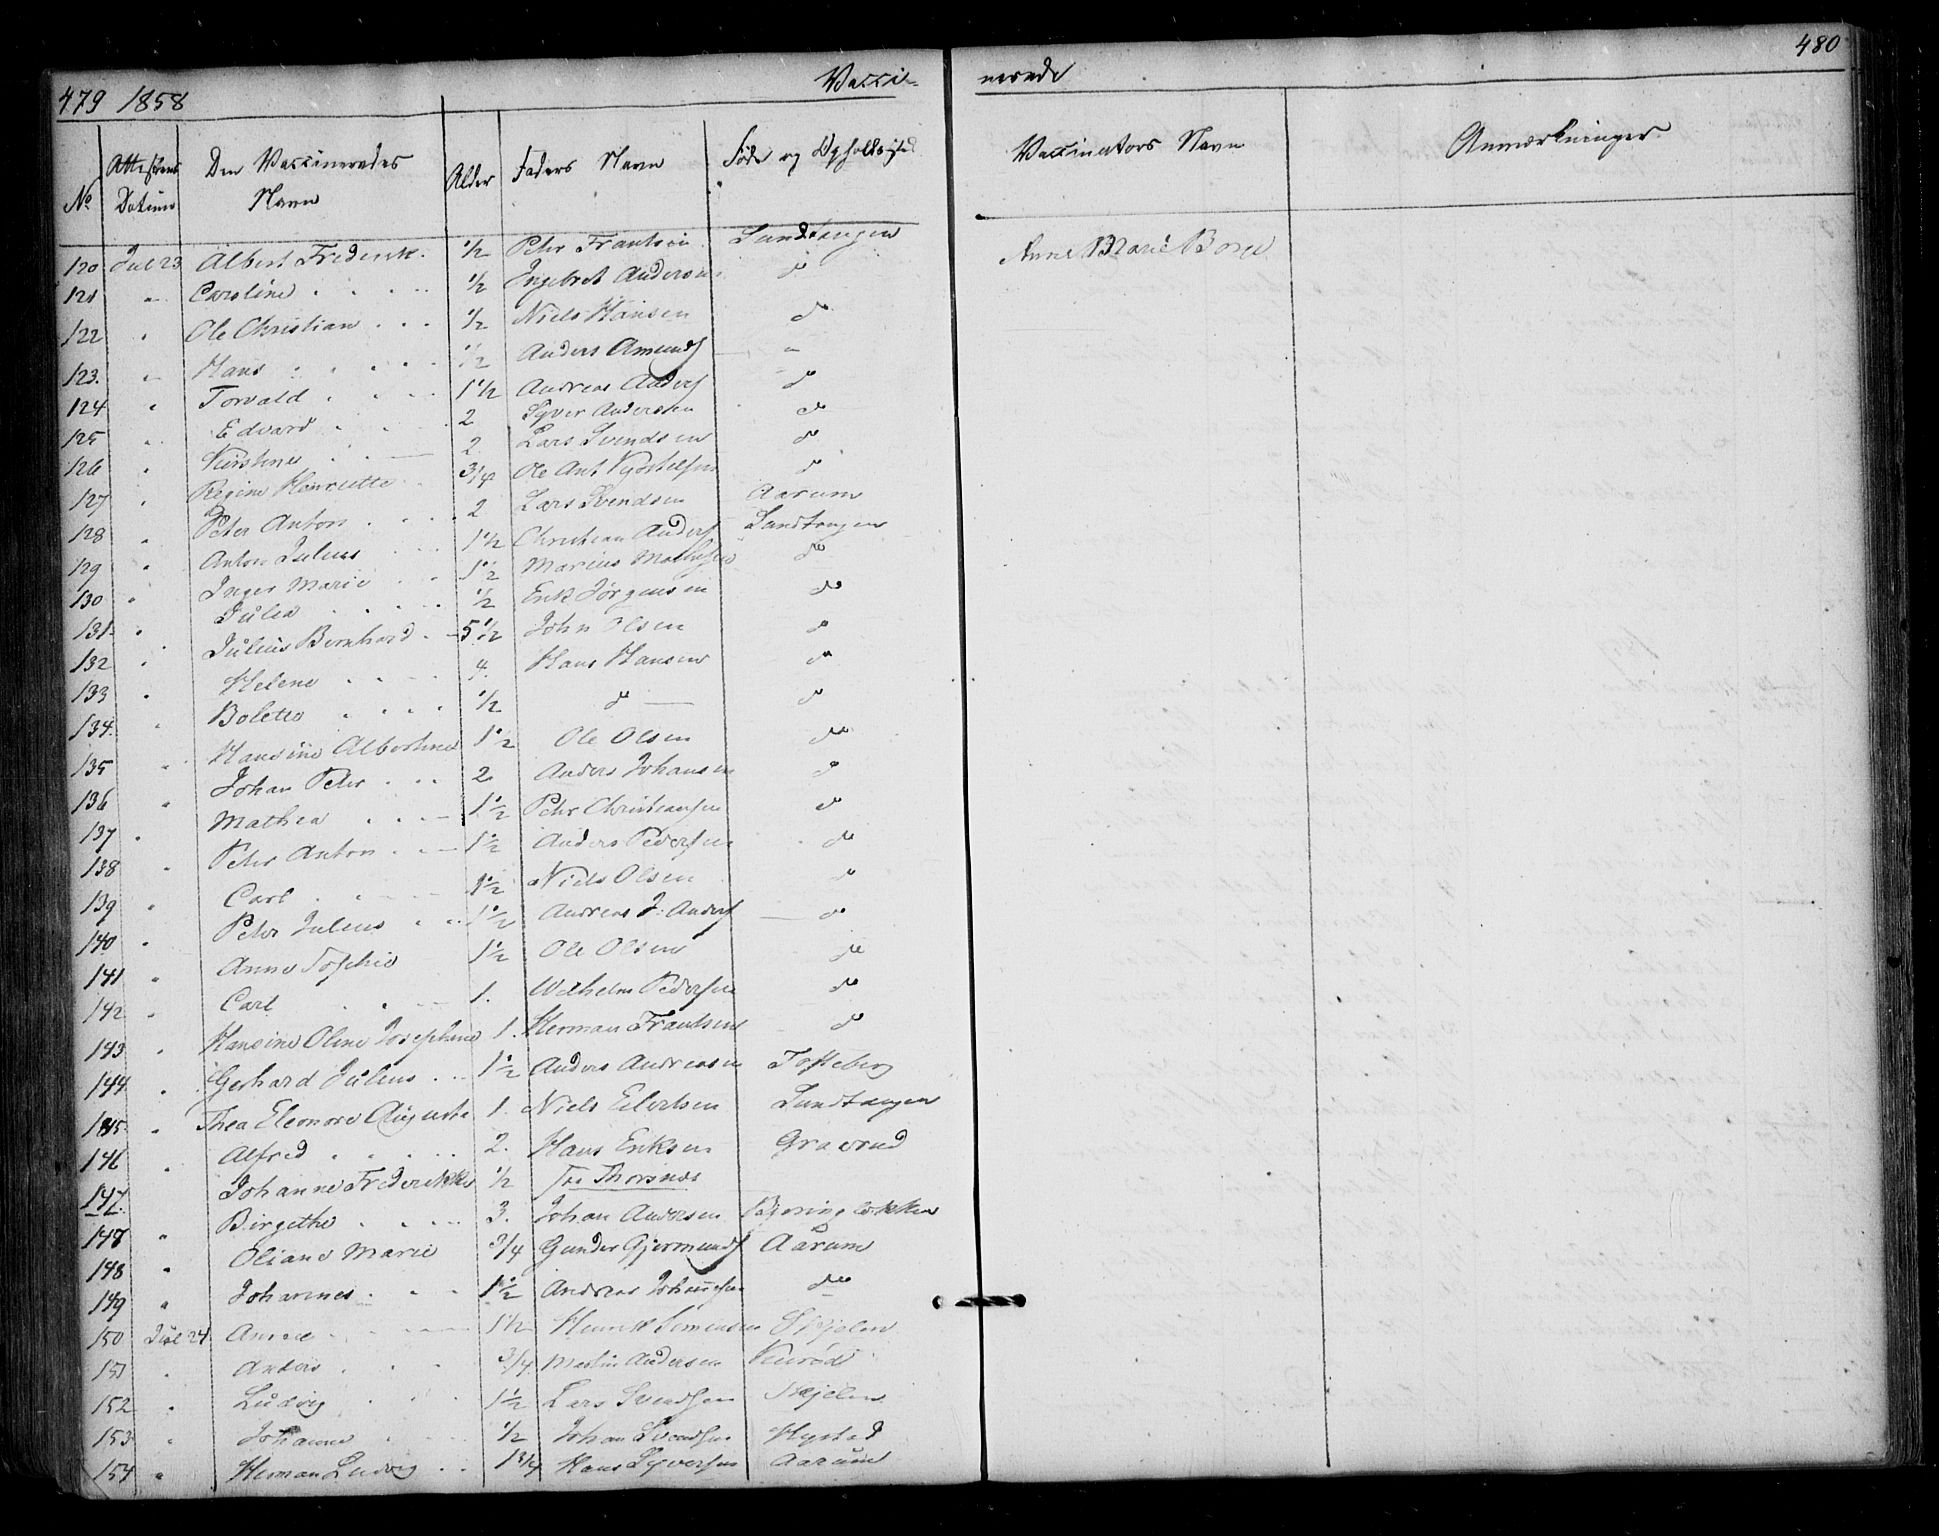 479 1858 Vacci- nerede 480
No Attestens Datum Den Vaccineredes Navn Alder Faders Navn Føde og Opholdssted Vaccinators Navn Anmærkninger
120 Jul 23 Albert Frederik. 1/2 Peter Frantsen Sandtangen Anne Marie Borge
121 " Caroline 1/2 Ingebret Andersen do
122 " Ole Christian 1/2 Niels Hansen do
123. " Hans 1/2 Anders Amunds "
124 " Torvald 1 1/2 Andreas Anders do
125 " Edvard 2 Syver Andersen do
126 " Kirstine 2 Lars Svendsen do
127 " Regine Henriette 3/4 Ole Ant do
128 " Peter Anton 2 Lars Svendsen Aarum
129 " Anton Julius 1 1/2 Christian Anders Sandtangen
130 " Inger Marie 1 1/2 Marius Mathisen do
131 " Julia 1/2 Erik Jørgensen do
132 " Julius Bernhard 5 1/2 John Olsen do
133 " Helene 4. Hans Hansen do
134. " Bolette 1/2 do do
135 " Hansine Albertine 1 1/2 Ole Olsen do
136 " Johan Peter 2 Anders Johansen do
137 " Mathea 1 1/2 Peter Christiansen do
138 " Peter Anton 1 1/2 Anders Pedersen do
139 " Carl 1 1/2 Niels Olsen do
140 " Peter Julius 1 1/2 Andreas J: Anders do
141 " Anne Sophie 1 1/2 Ole Olsen do
142 " Carl 1. Wilhelm Pedersen do
143 " Hansine Oline Josephine 1. Herman Frantsen do
144. " Gerhard Julius 1 1/2 Anders Andreasen Tofteberg
145 " Thea Eleonore Auguste 1. Niels Eilertsen Sandtangen
146 " Alfred 2. Hans Eriksen Graverud
147. Johanne Frederikke 1/2 Thorsnes
148 " Birgithe 3. Johan Andersen Bjøringløkken
148 " Oliane Marie 3/4 Gunder Gjermunds Aarum
149 " Johannes 1 1/2 Andreas Johannesen do
150 Jul 24 Anne 1 1/2 Henrik Simensen Skjelin
151 " Anders 3/4 Martin Andersen
152 " Ludvig 1 1/2 Lars Svendsen Skjelin
153 " Johanne 1/2 Johan Svendsen Hystad
154 " Herman Ludvig 1 3/4 Hans Syversen Aarum